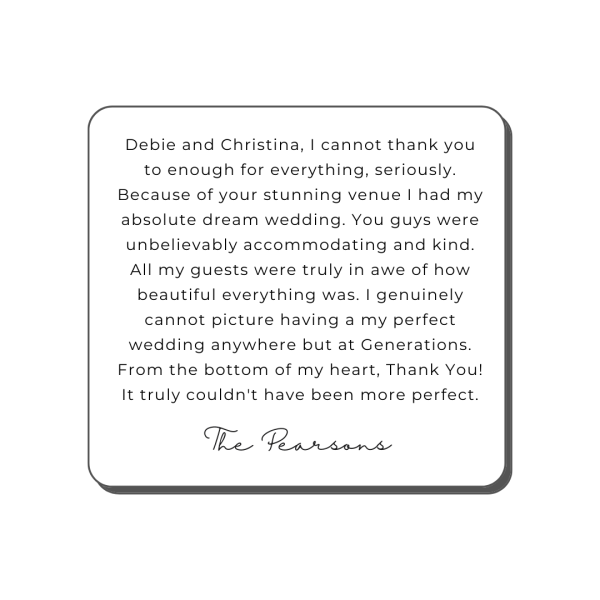 Debie and Christina, I cannot thank you
to enough for everything, seriously.
Because of your stunning venue I had my
absolute dream wedding. You guys were
unbelievably accommodating and kind.
All my guests were truly in awe of how
beautiful everything was. I genuinely
cannot picture having a my perfect
wedding anywhere but at Generations.
From the bottom of my heart, Thank You!
It truly couldn't have been more perfect.
The Pearsons